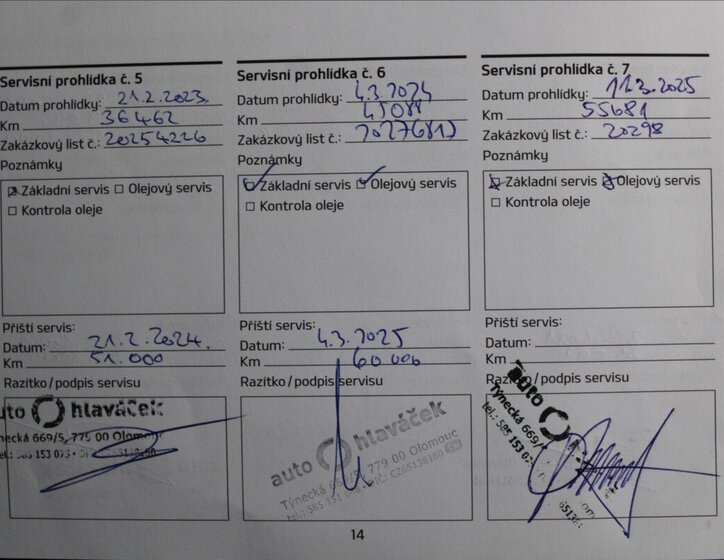 Servisní prohlídka č. 5
Datum prohlídky: 21.2.2023.
Km 36462
Zakázkový list č.: 20254226
Poznámky
Základní servis Olejový servis
Kontrola oleje
Příští servis:
Datum: 21.2.2024.
Km 51.000
Razítko/podpis servisu
uto hlaváček
necká 669/5, 779 00 Olomouc
Servisní prohlídka č. 6
Datum prohlídky: 4.3.2024
Km 45088
Zakázkový list č.:
Poznámky
Základní servis Olejový servis
Kontrola oleje
Příští servis:
Datum: 4.3.2025
Km 60 000
Razítko/podpis servisu
auto hlaváček
Týnecká 779 00 Olomouc
CZ65138180
Servisní prohlídka č. 7
Datum prohlídky: 11.3.2025
Km 55681
Zakázkový list č.: 20298
Poznámky
Základní servis Olejový servis
Kontrola oleje
Příští servis:
Datum:
Km
Razítko/podpis servisu
auto
Týnecká 669/5
tel.: 585 153 07
14